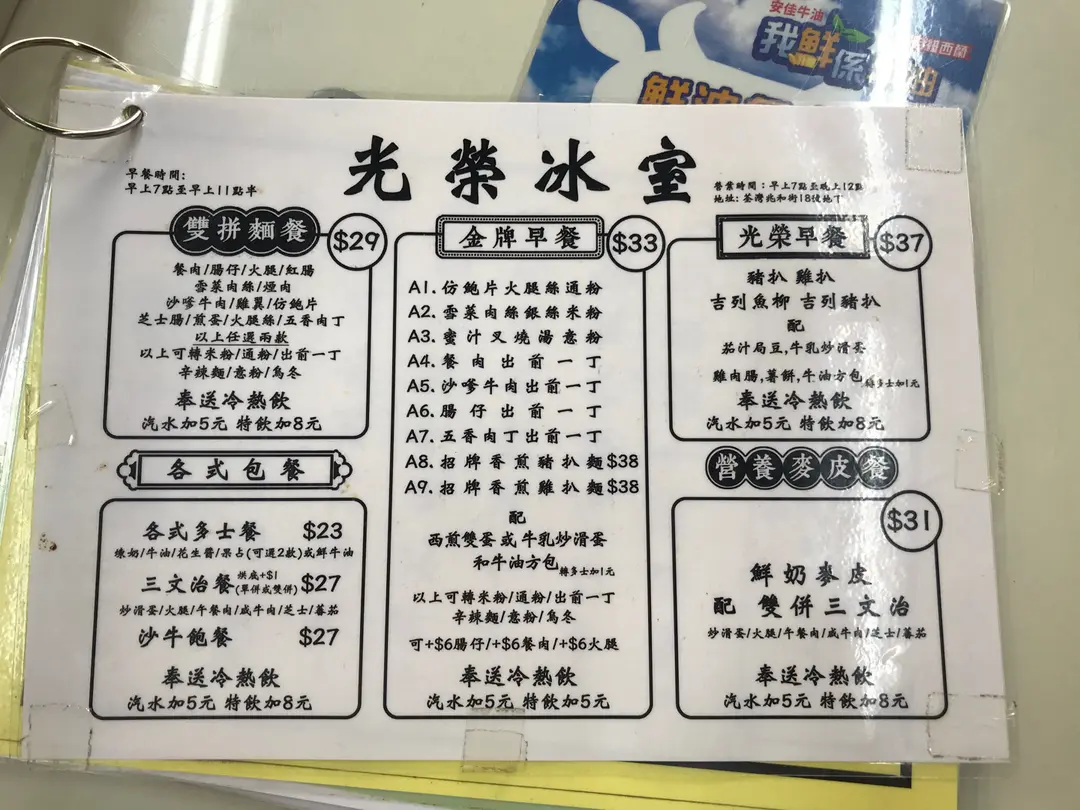 安佳牛油
我鮮係
西蘭
光榮冰室
早餐時間:
早上7點至早上11點半
營業時間:早上7點至晚上12點
地址: 荃灣兆和街18號地丁
雙拼麵餐 $29
餐肉/腸仔/火腿/紅腸
雪菜肉絲/煙肉
沙嗲牛肉/雞翼/仿鮑片
芝士腸/煎蛋/火腿絲/五香肉丁
以上任選兩款
以上可轉米粉/通粉/出前一丁
辛辣麵/意粉/烏冬
奉送冷熱飲
汽水加5元 特飲加8元
各式包餐
各式多士餐 $23
煉奶/牛油/花生醬/果占(可選2款)或鮮牛油
三文治餐 烘底+$1 (單併或雙併) $27
炒滑蛋/火腿/午餐肉/咸牛肉/芝士/蕃茄
沙牛飽餐 $27
奉送冷熱飲
汽水加5元 特飲加8元
金牌早餐 $33
A1. 仿鮑片火腿絲通粉
A2. 雪菜肉絲銀絲米粉
A3. 蜜汁叉燒湯意粉
A4. 餐肉出前一丁
A5. 沙嗲牛肉出前一丁
A6. 腸仔出前一丁
A7. 五香肉丁出前一丁
A8. 招牌香煎豬扒麵 $38
A9. 招牌香煎雞扒麵 $38
配
西煎雙蛋或牛乳炒滑蛋
和牛油方包 轉多士加1元
以上可轉米粉/通粉/出前一丁
辛辣麵/意粉/烏冬
可+$6腸仔/+$6餐肉/+$6火腿
奉送冷熱飲
汽水加5元 特飲加5元
光榮早餐 $37
豬扒 雞扒
吉列魚柳 吉列豬扒
配
茄汁局豆,牛乳炒滑蛋
雞肉腸,薯餅,牛油方包 轉多士加1元
奉送冷熱飲
汽水加5元 特飲加8元
營養麥皮餐
$31
鮮奶麥皮
配 雙併三文治
炒滑蛋/火腿/午餐肉/咸牛肉/芝士/蕃茄
奉送冷熱飲
汽水加5元 特飲加8元